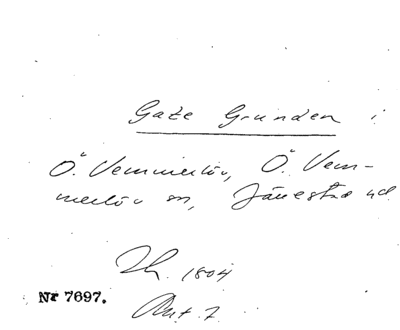 Gate Grunden i
Ö. Vemmerlöv, Ö. Vem-
merlöv sn, Järrestad
1804
Nr 7697.
7